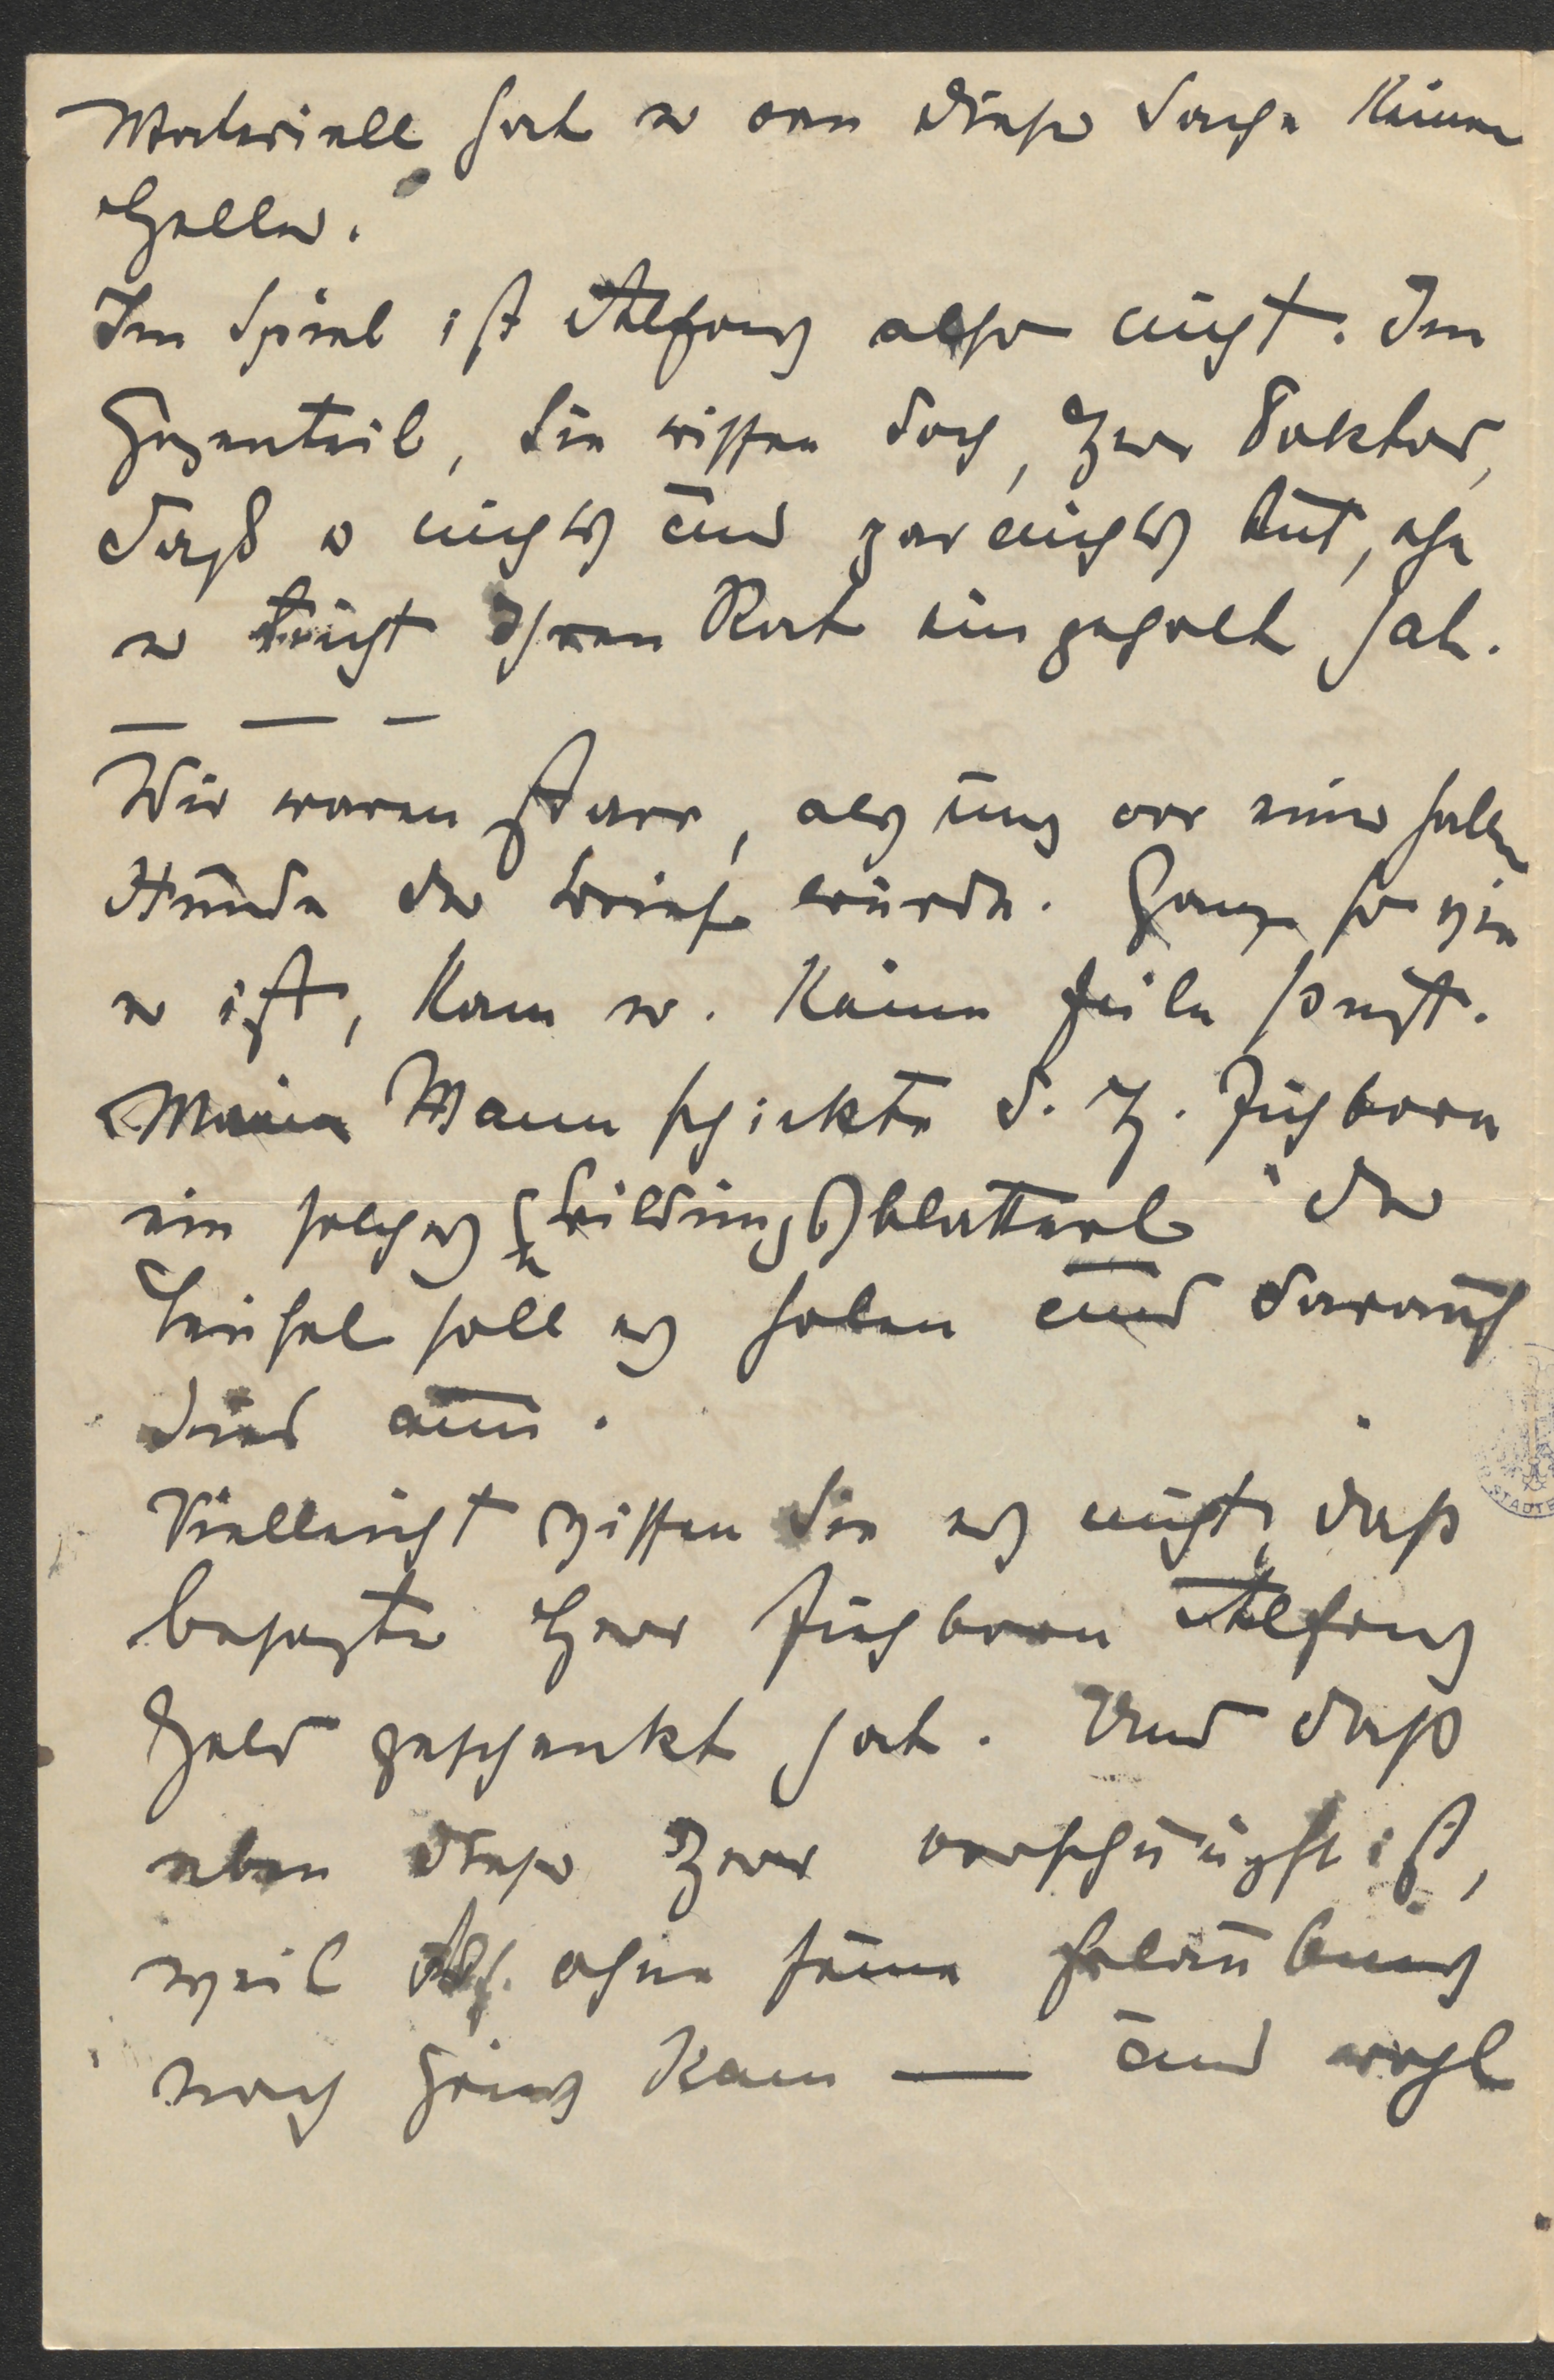 Materiell hat er an dieser Sache keinen
Heller.
Im Spiel ist Alfons also nicht. Im
Gegenteil, Sie wissen doch, Herr Doktor,
daß er nichts und gar nichts tut, ehe
er nicht Ihren Rat eingeholt hat.
— — —
Wir waren starr, als uns vor einer halben
Stunde der Brief wurde. Ganz so wie
er ist, kam er. Keine Zeile sonst.
Mein Mann schickte d. H. Fischborn
ein solches Zeitungsblatterl der
Teufel soll es holen und darauf
sind
Vielleicht wissen Sie es nicht, daß
besagter Herr Fischborn Alfons
Geld geschenkt hat. Und daß
eben dieser Herr verschnupft ist,
weil Alf. ohne seine Erlaubnis
nach Hinz kam — und wohl